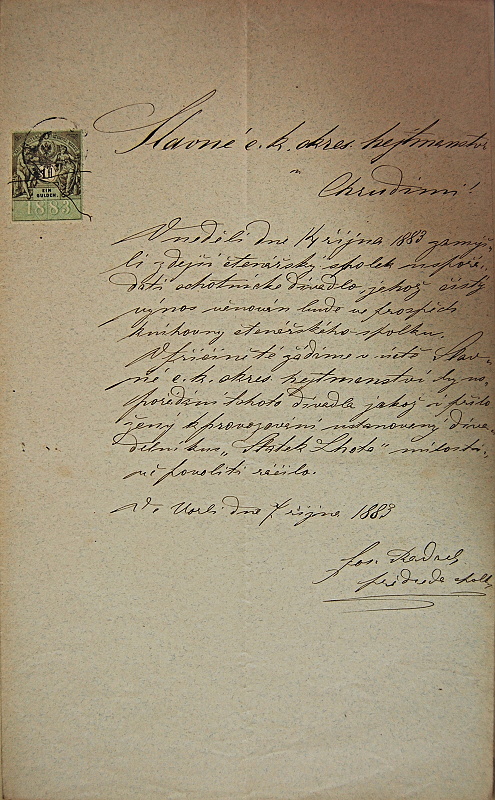 Slavné c. k. okres. hejtmanství
v
Chrudimi!
EIN
GULDEN
1883
V neděli dne 14 října 1883 zamýš-
lí zdejší čtenářský spolek uspořá-
dati ochotnické divadlo, jehož čistý
výnos věnován bude ve prospěch
knihovny čtenářského spolku.
V příčině té žádáme v úctě Slav-
né c. k. okres. hejtmanství by us-
pořádání tohoto divadla jakož i přilo-
žený k provozování ustanovený diva-
delní kus „Statek Lhota" milosti-
vě povoliti ráčilo.
dne 7 října 1883
Jos.
předseda spolk